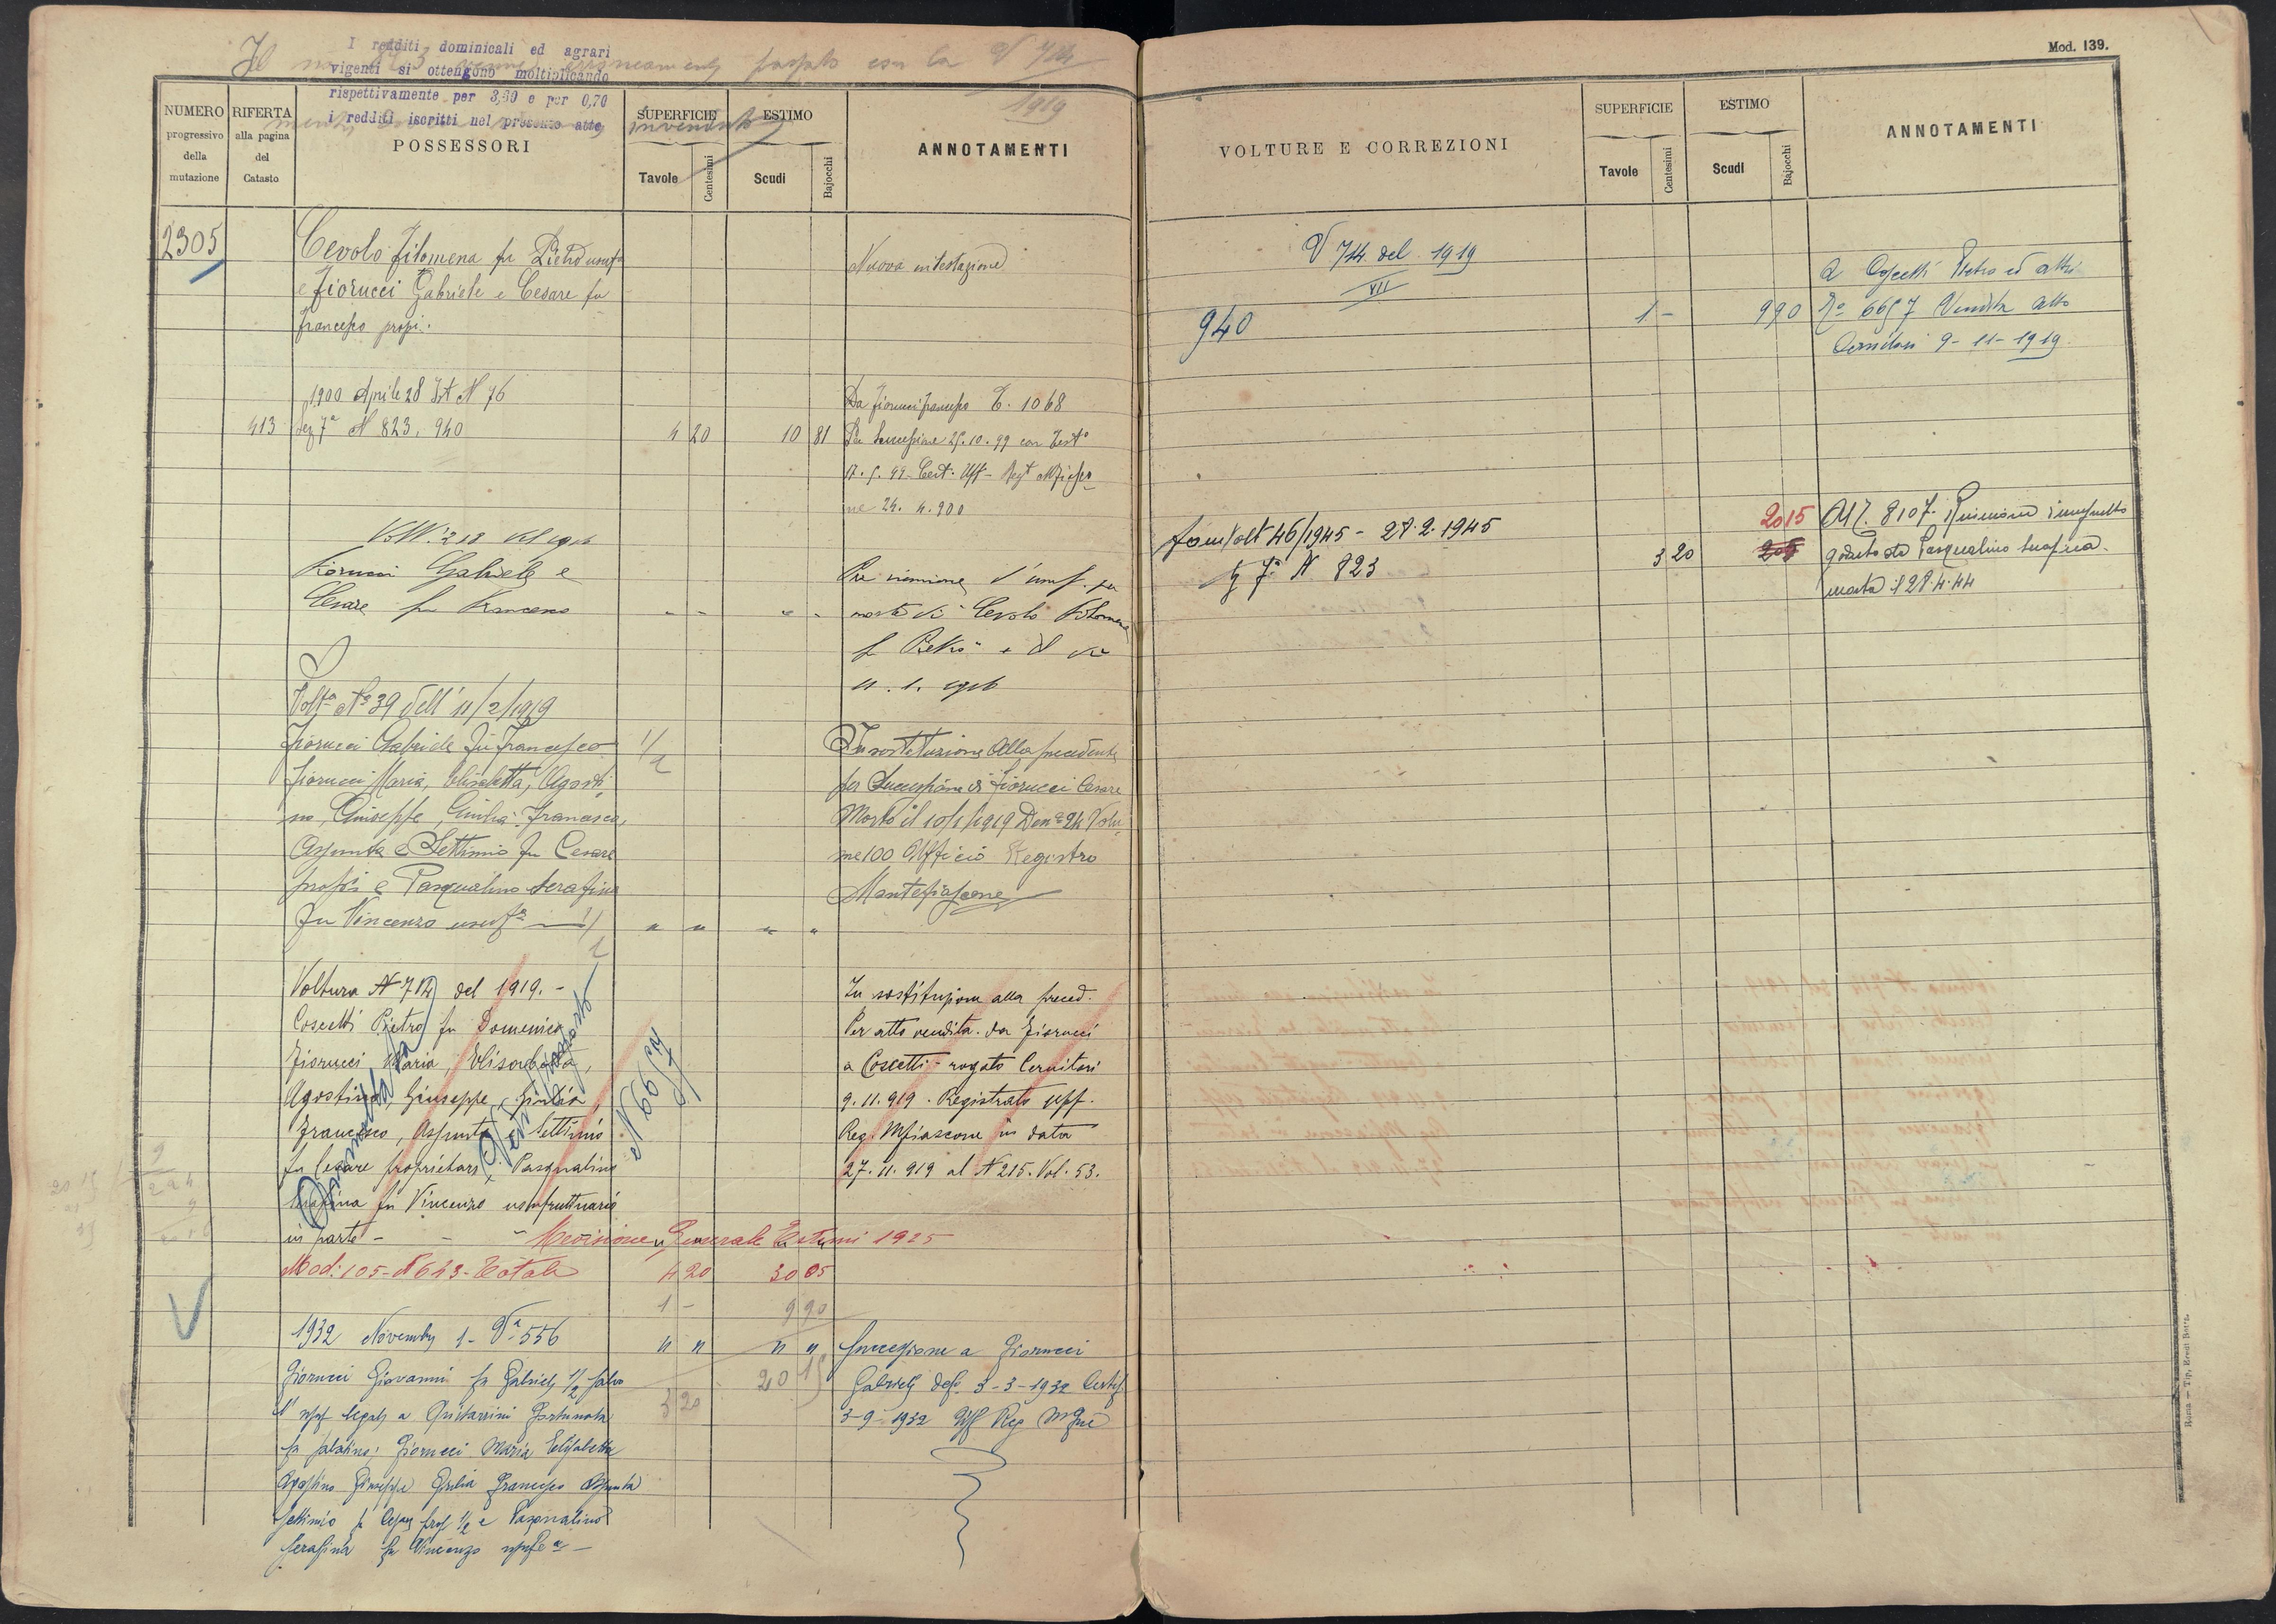 Mod. 139.
Il no 823 venne erroneamente passato con la V 714
1919
I redditi dominicali ed agrari
vigenti si ottengono moltiplicando
rispettivamente per 3,60 e per 0,70
i redditi iscritti nel presente atto
invenduto
NUMERO
progressivo
della
mutazione
RIFERTA
alla pagina
del
Catasto
POSSESSORI
SUPERFICIE
Tavole
Centesimi
ESTIMO
Scudi
Bajocchi
ANNOTAMENTI
2305
Cevolo Filomena fu Pietro usuf.a
e Fiorucci Gabriele e Cesare fu
Francesco propi.
Nuova intestazione
1900 Aprile 28 Ist N 76
413 Sez 7a N 823. 940 4 20 10 81
Da Fiorucci Francesco C. 1068
Per Successione 25.10.99 con Test.o
Cert. Uff. Regt Mfiasco-
ne 24. 4. 900
Fiorucci Gabriele e
Cesare fu Francesco
Per riunione d'usuf. per
morte di Cevolo Filomena
fu Pietro
Volt.a No 39 dell' 11/2/1919
Fiorucci Gabriele fu Francesco 1/2
Fiorucci Maria, Elisabetta, Agosti-
no, Giuseppe, Giulia, Francesco,
Assunta e Settimio fu Cesare
propri e Pasqualino Serafina
fu Vincenzo usuf.a 1/2 " " " "
In sostituzione alla precedente
per Successione di Fiorucci Cesare
Morto il 10/1/1919 Den.a 24 Volu-
me 100 Ufficio Registro
Montefiascone
Voltura N 714 del 1919. -
Coscetti Pietro fu Domenico
Fiorucci Maria, Elisabetta,
Agostino, Giuseppe, Giulia,
Francesco, Assunta e Settimio
fu Cesare proprietari, Pasqualino
Serafina fu Vincenzo usufruttuario
in parte -
Annullata
Vedi trasporto
al N 6657
In sostituzione alla preced.
Per atto vendita da Fiorucci
a Coscetti - rogato Cernitori
9.11.919. Registrato Uff.
Reg. Mfiascone in data
27.11.919 al N 215. Vol. 53.
Revisione Generale Estimi 1925
Mod: 105 - N 643 - Totale 4 20 30 05
1 - 9 90
1932 Novembre 1 - Va 556 " " " "
3 20 20 15
Fiorucci Giovanni fu Gabriele 1/2 salvo
l'usuf legale a Fortunata
fu Fiorucci Maria Elisabetta
Agostino Giuseppe Giulia Francesco Assunta
Settimio fu Cesare prop 1/2 e Pasqualino
Serafina fu Vincenzo usuf.a -
Successione a Fiorucci
Gabriele def. 3-3-1932 Certif.
3-9-1932 Uff Reg Mfne
VOLTURE E CORREZIONI
SUPERFICIE
Tavole
Centesimi
ESTIMO
Scudi
Bajocchi
ANNOTAMENTI
V 714 del 1919
VII
940 1 - 9 90
a Coscetti Pietro ed altri
No 6657 Vendita atto
Cernitori 9-11-1919
Volt 46/1945 - 27.2.1945
Sez 7a N 823 3 20 20 15
Al C. 8107. Riunione d'usufrutto
goduto da Pasqualino Serafina
morta il 28.4.44